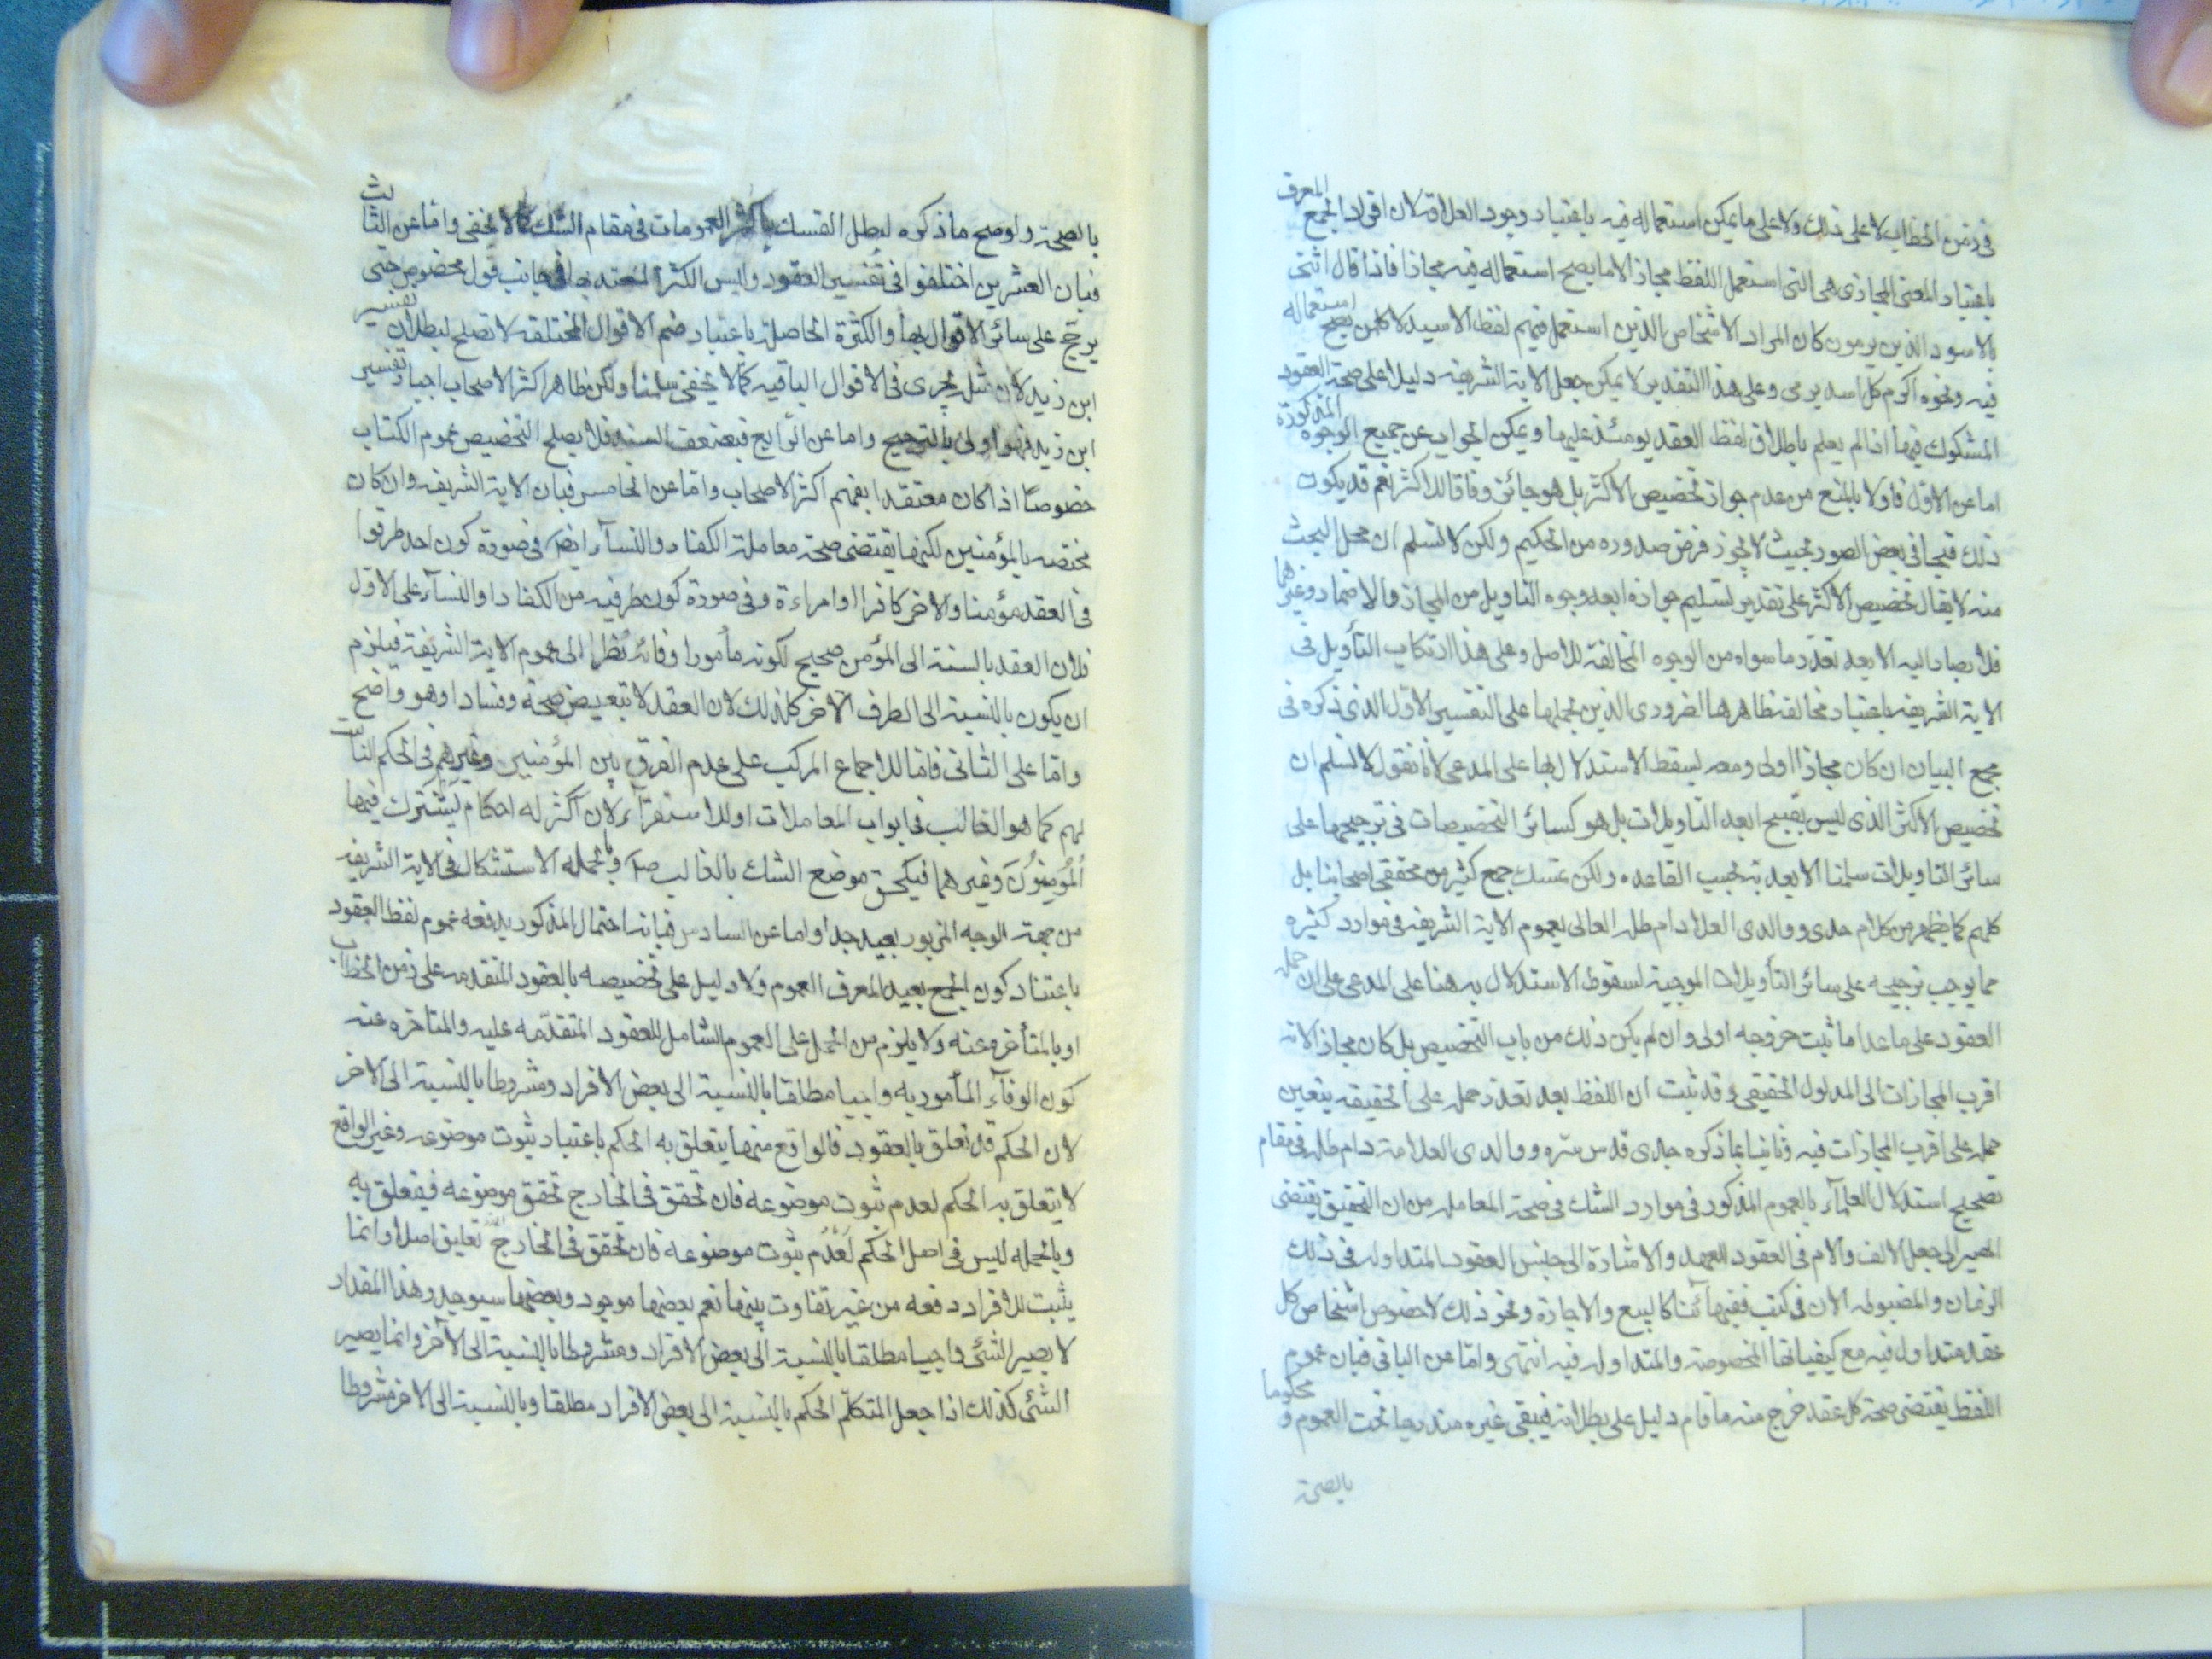 فى زمن الخطاب لا على ذلك ولا على ما يمكن استعماله فيه باعتبار وجود العلاقة لان افراد الجمع المعرف
باعتبار المعنى المجازى هى التى استعمل اللفظ مجازا لا ما يصح استعماله فيه مجازا فاذا قال ائتنى
بالاسود الذين يرمون كان المراد الاشخاص الذين استعمل فيهم لفظ الاسد لا كل من يصح استعماله
فيه ونحوه اكرم كل اسد يرمى وعلى هذا التقدير لا يمكن جعل الاية الشريفه دليلا على صحة العقود
المشكوك فيها اذا لم يعلم باطلاق لفظ العقد يومئذ عليها ويمكن الجواب عن جميع الوجوه المذكورة
اما عن الاول فاولا بالمنع من عدم جواز تخصيص الاكثر بل هو جائز وفاقا للاكثر نعم قد يكون
ذلك قبيحا فى بعض الصور بحيث لا يجوز فرض صدوره من الحكيم ولكن لا نسلم ان محل البحث
منه لا يقال تخصيص الاكثر على تقدير تسليم جوازه ابعد وجوه التاويل من المجاز والاضمار وغيرهما
فلا يصار اليه الا بعد تعذر ما سواه من الوجوه المخالفة للاصل وعلى هذا ارتكاب التأويل فى
الاية الشريفه باعتبار مخالفة ظاهرها الضرورى الدين بحملها على التفسير الاول الذى ذكره فى
مجمع البيان ان كان مجازا اولى ومعه يسقط الاستدلال بها على المدعى لانا نقول لا نسلم ان
تخصيص الاكثر الذى ليس بقبيح ابعد التاويلات بل هو كسائر التخصيصات فى ترجيحها على
سائر التاويلات سلمنا الابعدية بحسب القاعده ولكن تمسك جمع كثير من محققى اصحابنا بل
كلهم كما يظهر من كلام جدى ووالدى العلا دام ظله العالى بعموم الاية الشريفه فى موارد كثيره
مما يوجب ترجيحه على سائر التأويلات الموجبة لسقوط الاستدلال به هنا على المدعى على ان حمل
العقود على ما عدا ما ثبت خروجه اولى وان لم يكن ذلك من باب التخصيص بل كان مجازا لانه
اقرب المجازات الى المدلول الحقيقى وقد ثبت ان اللفظ بعد تعذر حمله على الحقيقه يتعين
حمله على اقرب المجازات فيه وثانيا بما ذكره جدى قدس سره ووالدى العلامة دام ظله فى مقام
تصحيح استدلال العلمآء بالعموم المذكور فى موارد الشك فى صحة المعامله من ان التحقيق يقتضى
المصير الى جعل الالف والام فى العقود للعهد والاشارة الى جنس العقود المتداوله فى ذلك
الزمان والمضبوطه الان فى كتب فقهآئنا كالبيع والاجارة ونحو ذلك لا خصوص اشخاص كل
عقد متداول فيه مع كيفياتها المخصوصة والمتداوله فيه انتهى واما عن الباقى فبان عموم
اللفظ يقتضى صحة كل عقد خرج منه ما قام دليل على بطلانه فيبقى غيره مندرجا تحت العموم و محكوما
بالصحة
بالصحة ولو صح ما ذكره لبطل التمسك باكثر العمومات فى مقام الشك كما لا يخفى واما عن الثالث
فبان المفسرين اختلفوا فى تفسير العقود وليس الكثرة المعتد بها فى جانب قول مخصوص حتى
يرجح على سائر الاقوال بها والكثرة الحاصلة باعتبار ضم الاقوال المختلفه لا تصلح لبطلان تفسير
ابن زيد لان مثله يجرى فى الاقوال الباقيه كما لا يخفى سلمنا ولكن ظاهر اكثر الاصحاب اختيار تفسير
ابن زيد فهو اولى بالترجيح واما عن الرابع فبضعف السند فلا يصلح لتخصيص عموم الكتاب
خصوصًا اذا كان معتضدا بفهم اكثر الاصحاب واما عن الخامس فبان الاية الشريفه وان كان
مختصه بالمؤمنين لكنها يقتضى صحة معاملة الكفار والنسآء ايضا فى صورة كون احد طرفى
فى العقد مؤمنا والاخر كافرا او امراءة وفى صورة كون طرفيه من الكفار او النسآء على الاول
فلان العقد بالنسبة الى المؤمن صحيح لكونه مأمورا وفائه نظرا الى عموم الاية الشريفة فيلزم
ان يكون بالنسبة الى الطرف الآخر كذلك لان العقد لا تبعيض صحة وفسادا وهو واضح
واما على الثانى فاما للاجماع المركب على عدم الفرق بين المؤمنين وغيرهم فى الحكم الثابت
لهم كما هو الغالب فى ابواب المعاملات او للاستقرآء لان اكثر له احكام يشترك فيها
المؤمنون وغيرهما فيلحق موضع الشك بالغالب وبالجمله الاستشكال فى الاية الشريفه
من جهة الوجه المزبور بعيد جدا واما عن السادس فبان احتمال المذكور يدفعه عموم لفظ العقود
باعتبار كون الجمع يفيد المعرف العموم ولا دليل على تخصيصه بالعقود المتقدمه على زمن الخطاب
او بالمتأخرة عنه ولا يلزم من الحمل على العموم الشامل للعقود المتقدمه عليه والمتاخره عنه
كون الوفآء المأمور به واجبا مطلقا بالنسبة الى بعض الافراد ومشروطا بالنسبة الى الاخر
لان الحكم قد تعلق بالعقود فالواقع منها يتعلق به الحكم باعتبار ثبوت موضوعه وغير الواقع
لا يتعلق به الحكم لعدم ثبوت موضوعه فان تحقق فى الخارج تحقق موضوعه فيتعلق به
وبالجمله ليس فى اصل الحكم لعدم ثبوت موضوعه فان تحقق فى الخارج تعليق اصلا وانما
يثبت للافراد دفعه من غير تفاوت بينها نعم بعضها موجود وبعضها سيوجد وهذا المقدار
لا يصير الشئ واجبا مطلقا بالنسبة الى بعض الافراد ومشروطا بالنسبة الى الآخر وانما يصير
الشئ كذلك اذا جعل المتكلم الحكم بالنسبة الى بعض الافراد مطلقا وبالنسبة الى الاخر مشروطا